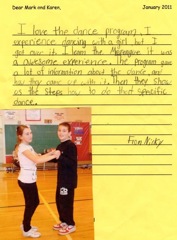 Dear Mark and Karen,
January 2011
I love the dance program. I
experience dancing with a girl but I
got over it. I learn the Merengue. it was
a awesome experience. The program gave
a lot of information about the dance and
how they came up with it. then they show
us the steps how to do that specific
dance.
From Nicky